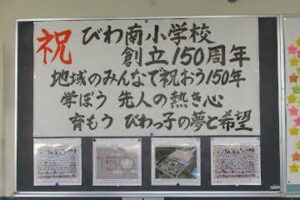 祝 びわ南小学校
創立150周年
地域のみんなで祝おう150年
学ぼう 先人の熱き心
育もう びわっ子の夢と希望
150